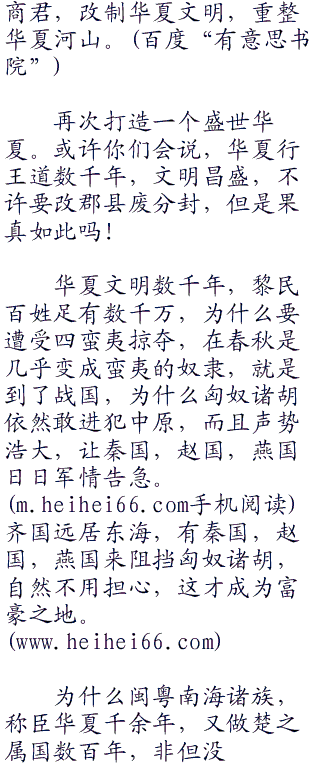 商君，改制华夏文明，重整
华夏河山。(百度“有意思书
院”)
再次打造一个盛世华
夏。或许你们会说，华夏行
王道数千年，文明昌盛，不
许要改郡县废分封，但是果
真如此吗！
华夏文明数千年，黎民
百姓足有数千万，为什么要
遭受四蛮夷掠夺，在春秋是
几乎变成蛮夷的奴隶，就是
到了战国，为什么匈奴诸胡
依然敢进犯中原，而且声势
浩大，让秦国，赵国，燕国
日日军情告急。
(m.heihei66.com手机阅读)
齐国远居东海，有秦国，赵
国，燕国来阻挡匈奴诸胡，
自然不用担心，这才成为富
豪之地。
(www.heihei66.com)
为什么闽粤南海诸族，
称臣华夏千余年，又做楚之
属国数百年，非但没